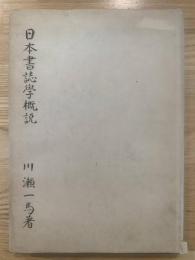 日本書誌學概説
川瀬一馬著